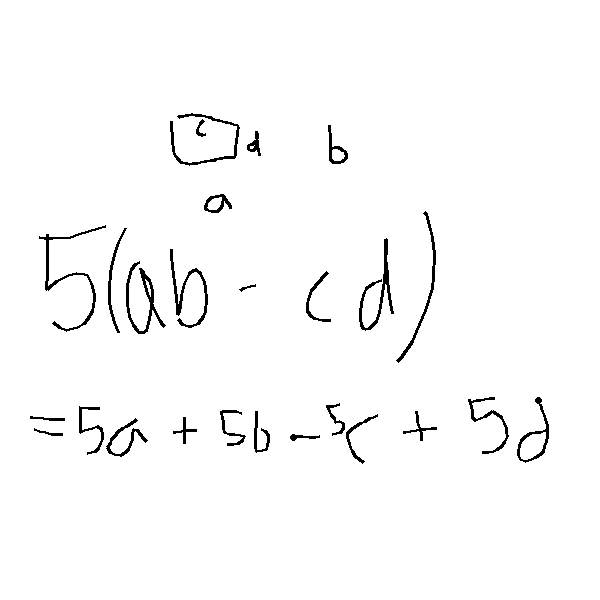 c d b
a
5(ab - cd)
=5a + 5b - 5c + 5d